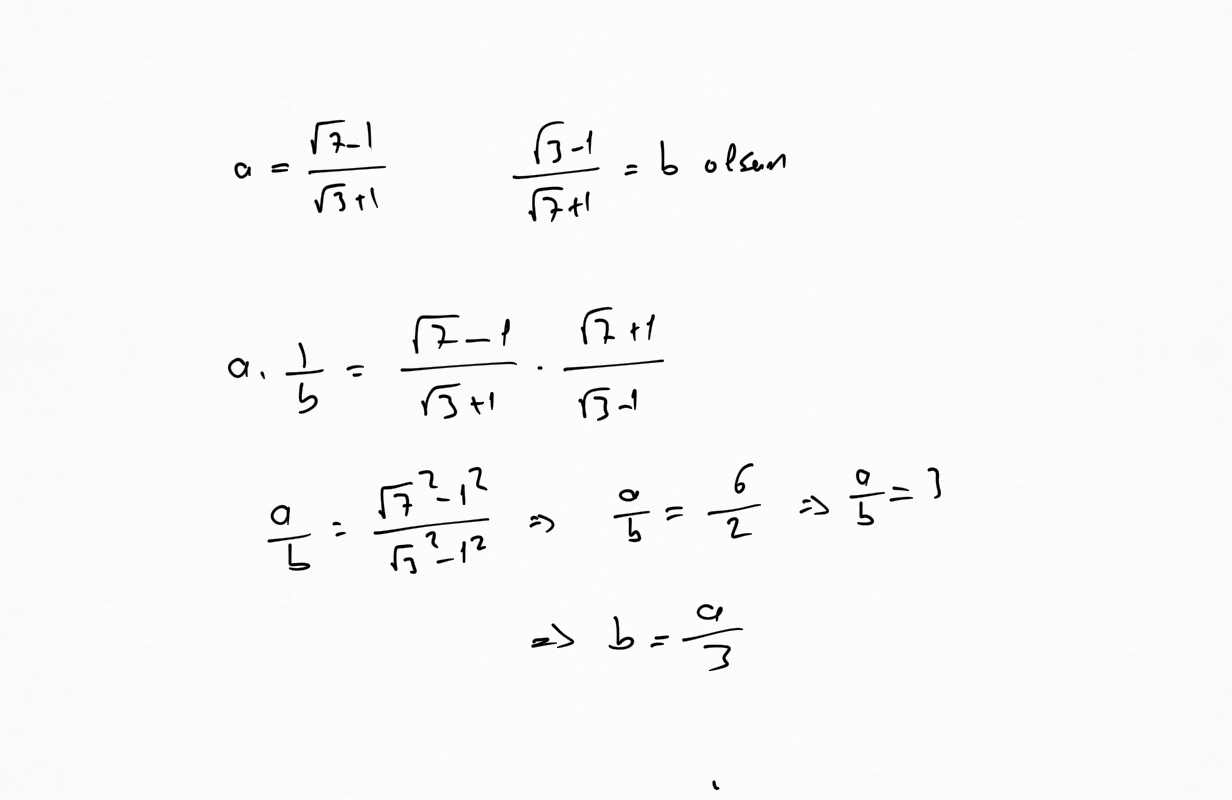 a = (√7-1)/(√3+1)    (√3-1)/(√7+1) = b olsun
a. 1/b = (√7-1)/(√3+1) · (√7+1)/(√3-1)
a/b = (√7²-1²)/(√3²-1²) => a/b = 6/2 => a/b = 3
=> b = a/3